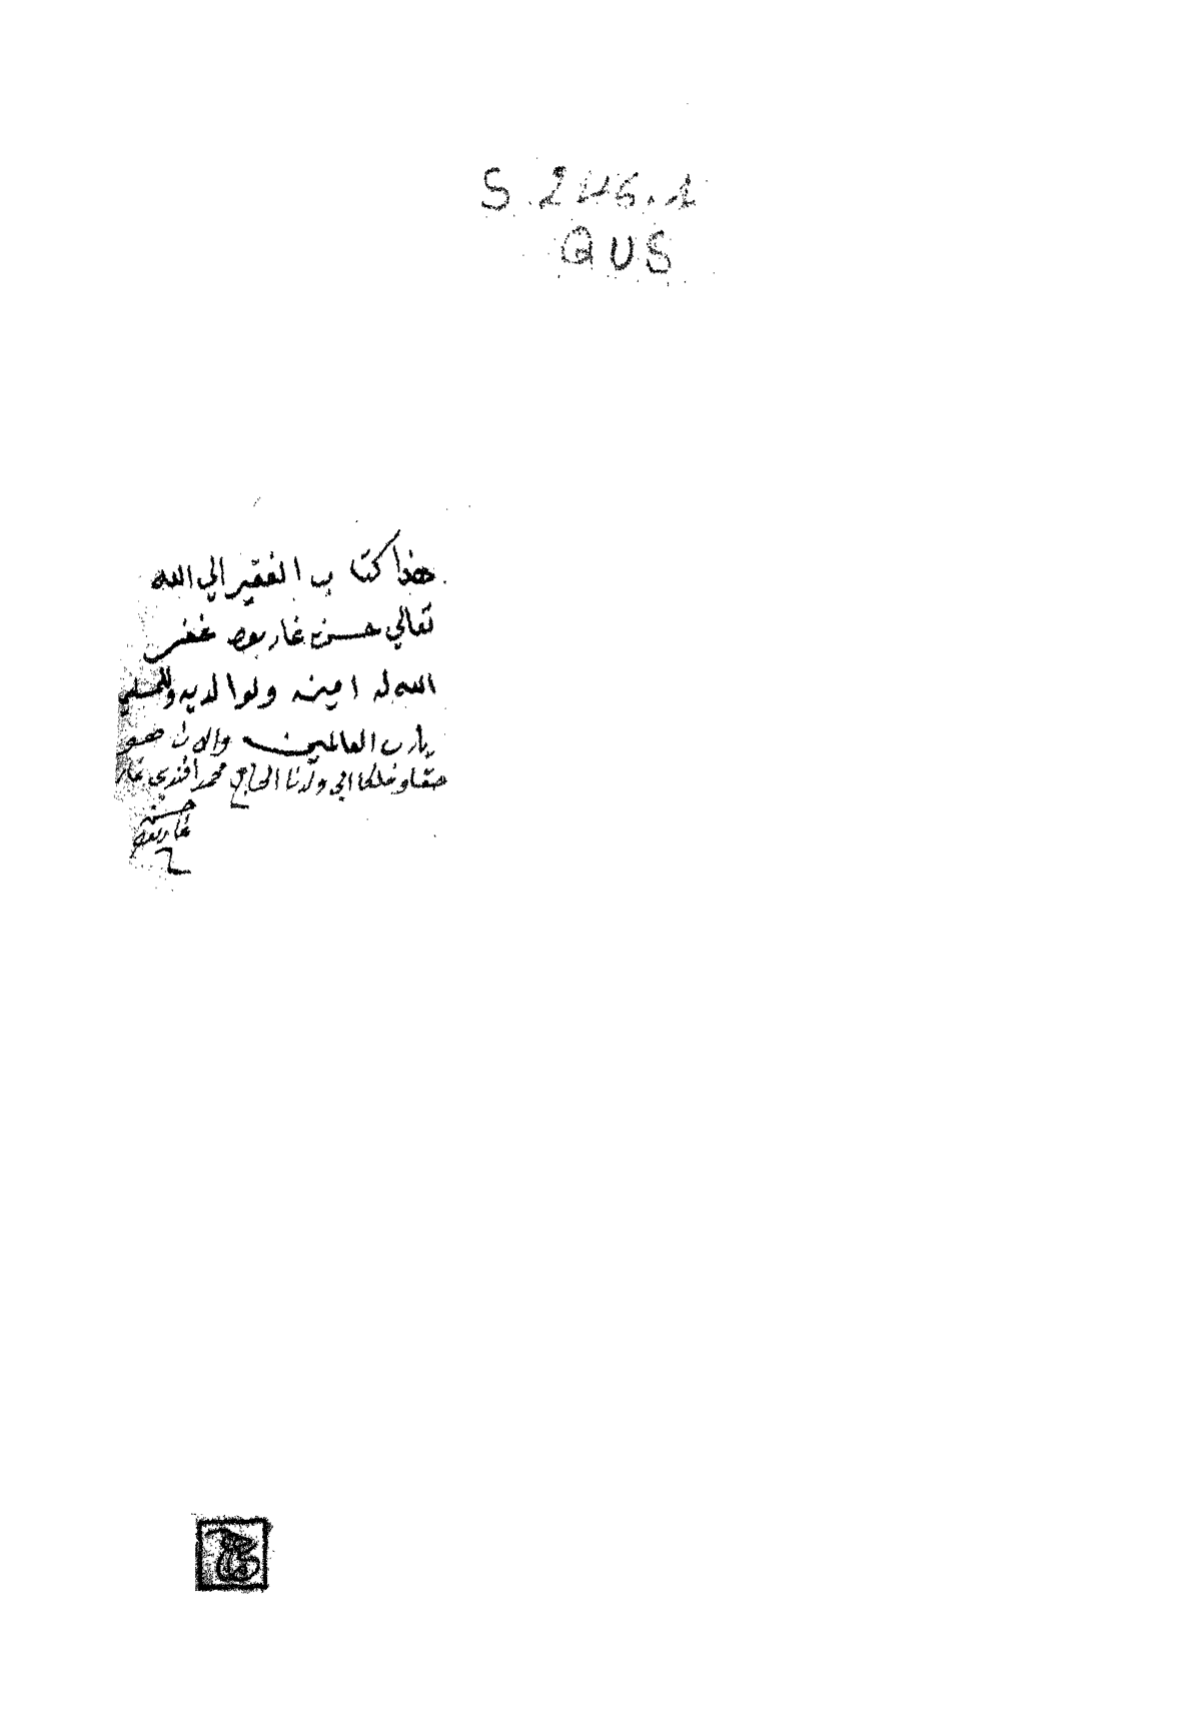 S 246.1
QUS
هذا كتاب الفقير الي الله
تعالي حسن غفر
الله له امين ولوالديه وللمسلمي
يارب العالمين والان هو
حقا وملكا الي ولدنا الحاج محمد افندي
حسن